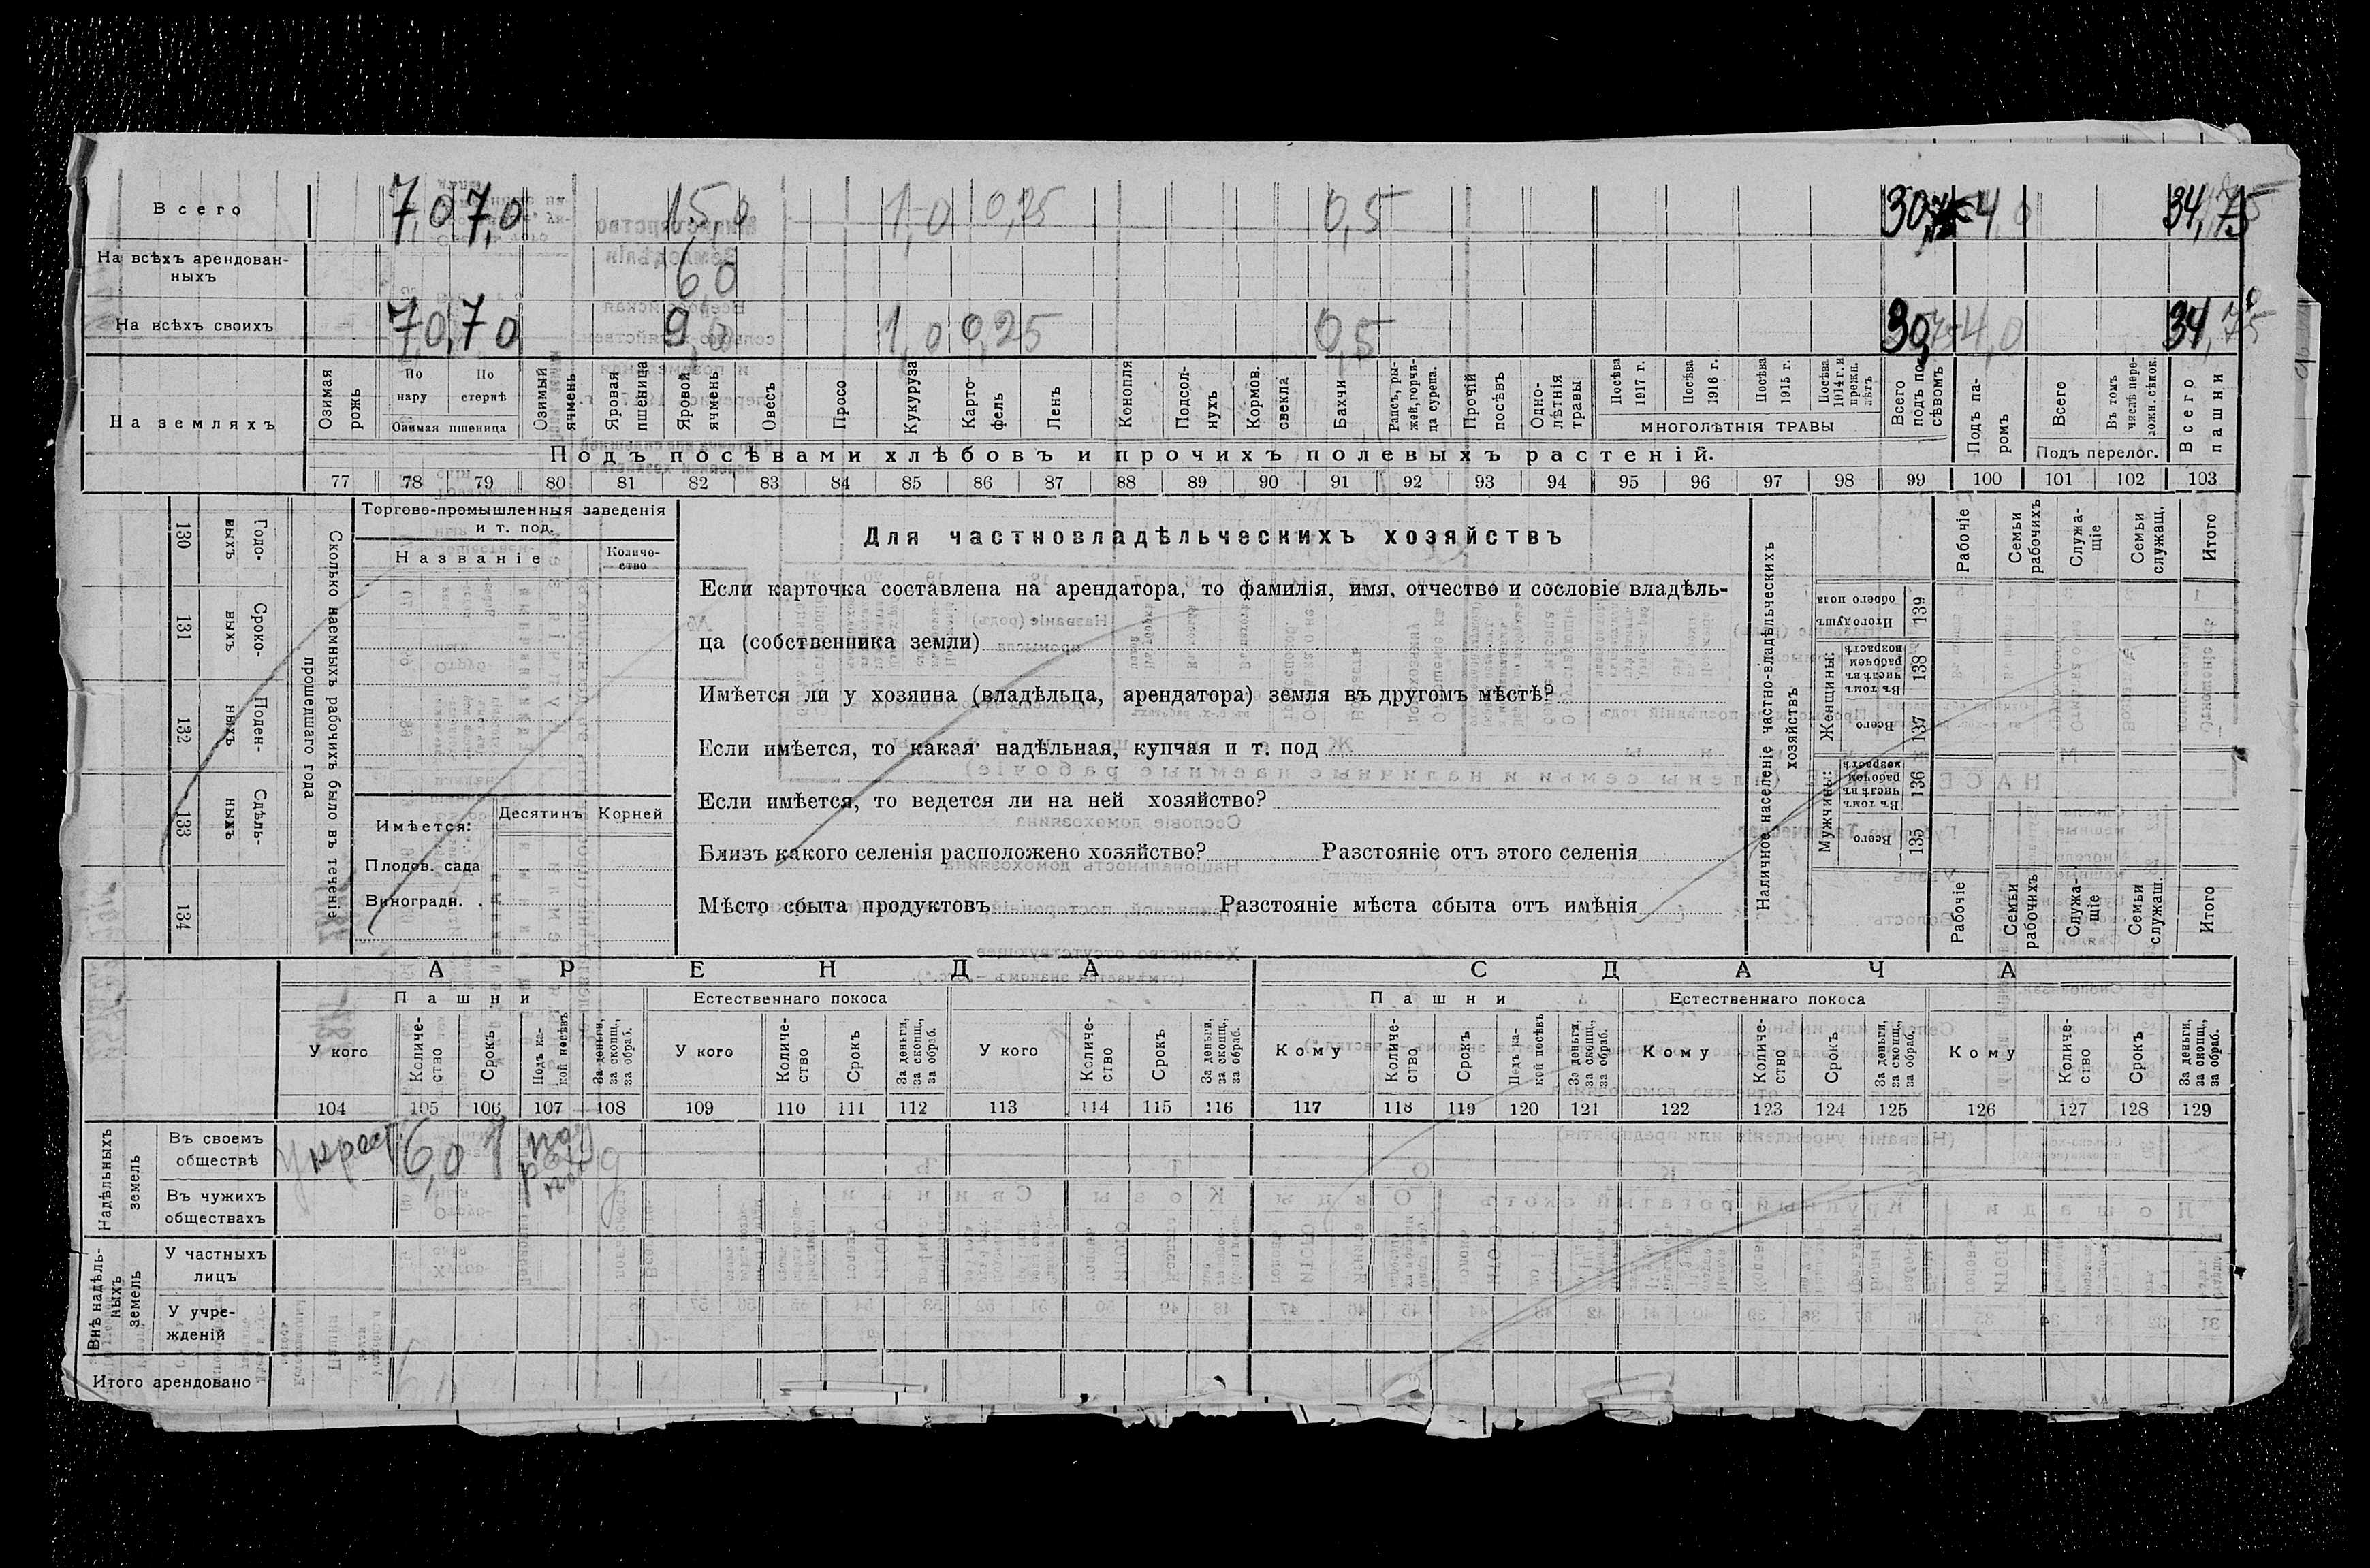 Всего 7,0 7,0 15,0 1,0 0,25 0,5 30,75 4,0 34,75
На всѣхъ арендован-
ныхъ 6,0
На всѣхъ своихъ 7,0 7,0 9,0 1,0 0,25 0,5 30,75 4,0 34,75
На земляхъ
Озимая рожь
По пару
По стернѣ
Озимая пшеница
Озимый ячмень
Яровая пшеница
Яровой ячмень
Овесъ
Просо
Кукуруза
Карто-
фель
Ленъ
Конопля
Подсол-
нухъ
Кормов. свекла
Бахчи
Рапсъ, ры-
жей, горчи-
ца сурепа.
Прочій посѣвъ
Одно-
лѣтнія
травы
Посѣва 1917 г.
Посѣва 1916 г.
Посѣва 1915 г.
Посѣва 1914 г. и прежн. лѣтъ
МНОГОЛѢТНІЯ ТРАВЫ
Всего подъ по-
сѣвомъ
Подъ па-
ромъ
Всего
Въ томъ числѣ пере-
ложн. сѣнок.
Подъ перелог.
Всего пашни
Подъ посѣвами хлѣбовъ и прочихъ полевыхъ растеній.
77 78 79 80 81 82 83 84 85 86 87 88 89 90 91 92 93 94 95 96 97 98 99 100 101 102 103
Сколько наемныхъ рабочихъ было въ теченіе
прошедшаго года
Годо-
выхъ
130
Сроко-
выхъ
131
Поден-
ныхъ
132
Сдѣль-
ныхъ
133
134
Торгово-промышленныя заведенія
и т. под.
Названіе
Количе-
ство
Имѣется:
Десятинъ Корней
Плодов. сада
Виноградн. .
Для частновладѣльческихъ хозяйствъ
Если карточка составлена на арендатора, то фамилія, имя, отчество и сословіе владѣль-
ца (собственника земли)
Имѣется ли у хозяина (владѣльца, арендатора) земля въ другомъ мѣстѣ?
Если имѣется, то какая: надѣльная, купчая и т. под
Если имѣется, то ведется ли на ней хозяйство?
Близъ какого селенія расположено хозяйство? Разстояніе отъ этого селенія
Мѣсто сбыта продуктовъ Разстояніе мѣста сбыта отъ имѣнія
Наличное населеніе частно-владѣльческихъ
хозяйствъ
Рабочіе
Семьи рабочихъ
Служа-
щіе
Семьи служащ.
Итого
Итого душъ
обоего пола
139
Женщины:
Въ томъ числѣ въ рабочемъ возрастѣ
138
Всего
137
Мужчины:
Въ томъ числѣ въ рабочем возрастѣ
136
Всего
135
Рабочіе
Семьи рабочихъ
Служа-
щіе
Семьи служащ.
Итого
АРЕНДА СДАЧА
Пашни Естественнаго покоса Пашни Естественнаго покоса
У кого
Количе-
ство
Срокъ
Подъ ка-
кой посѣвъ
За деньги, за скопщ., за обраб.
У кого
Количе-
ство
Срокъ
За деньги, за скопщ., за обраб.
У кого
Количе-
ство
Срокъ
За деньги, за скопщ., за обраб.
Кому
Количе-
ство
Срокъ
Подъ ка-
кой посѣвъ
За деньги, за скопщ., за обраб.
Кому
Количе-
ство
Срокъ
За деньги, за скопщ., за обраб.
Кому
Количе-
ство
Срокъ
За деньги, за скопщ., за обраб.
104 105 106 107 108 109 110 111 112 113 114 115 116 117 118 119 120 121 122 123 124 125 126 127 128 129
Надѣльныхъ земель
Въ своемъ
обществѣ
У крест 6,0 1
Въ чужихъ
обществахъ
Внѣ надѣль-
ныхъ
земель
У частныхъ
лицъ
У учре-
жденій
Итого арендовано 6,0